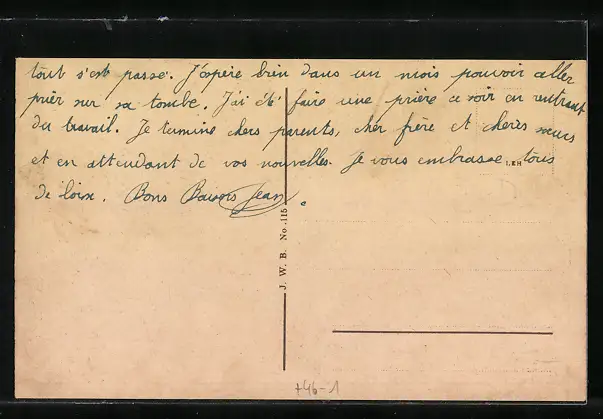 tout s'est passé. J'espère bien dans un mois pouvoir aller
prier sur sa tombe. J'ai été faire une prière ce soir en rentrant
du travail. Je termine chers parents, cher frère et chères sœurs
et en attendant de vos nouvelles. Je vous embrasse tous
de loin. Bons Baisers Jean.
J. W. B. No. 115
+46-1